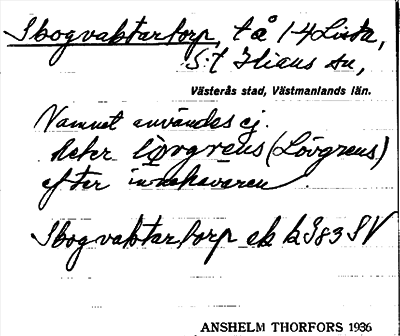 Skogvaktartorp, t å 1 4 Lista,
S:t Ilians sn,
Västerås stad, Västmanlands län.
Namnet användes ej.
heter Lövgrens (Lövgrens)
efter innehavaren.
Skogvaktartorp ek k 983 SV
ANSHELM THORFORS 1936